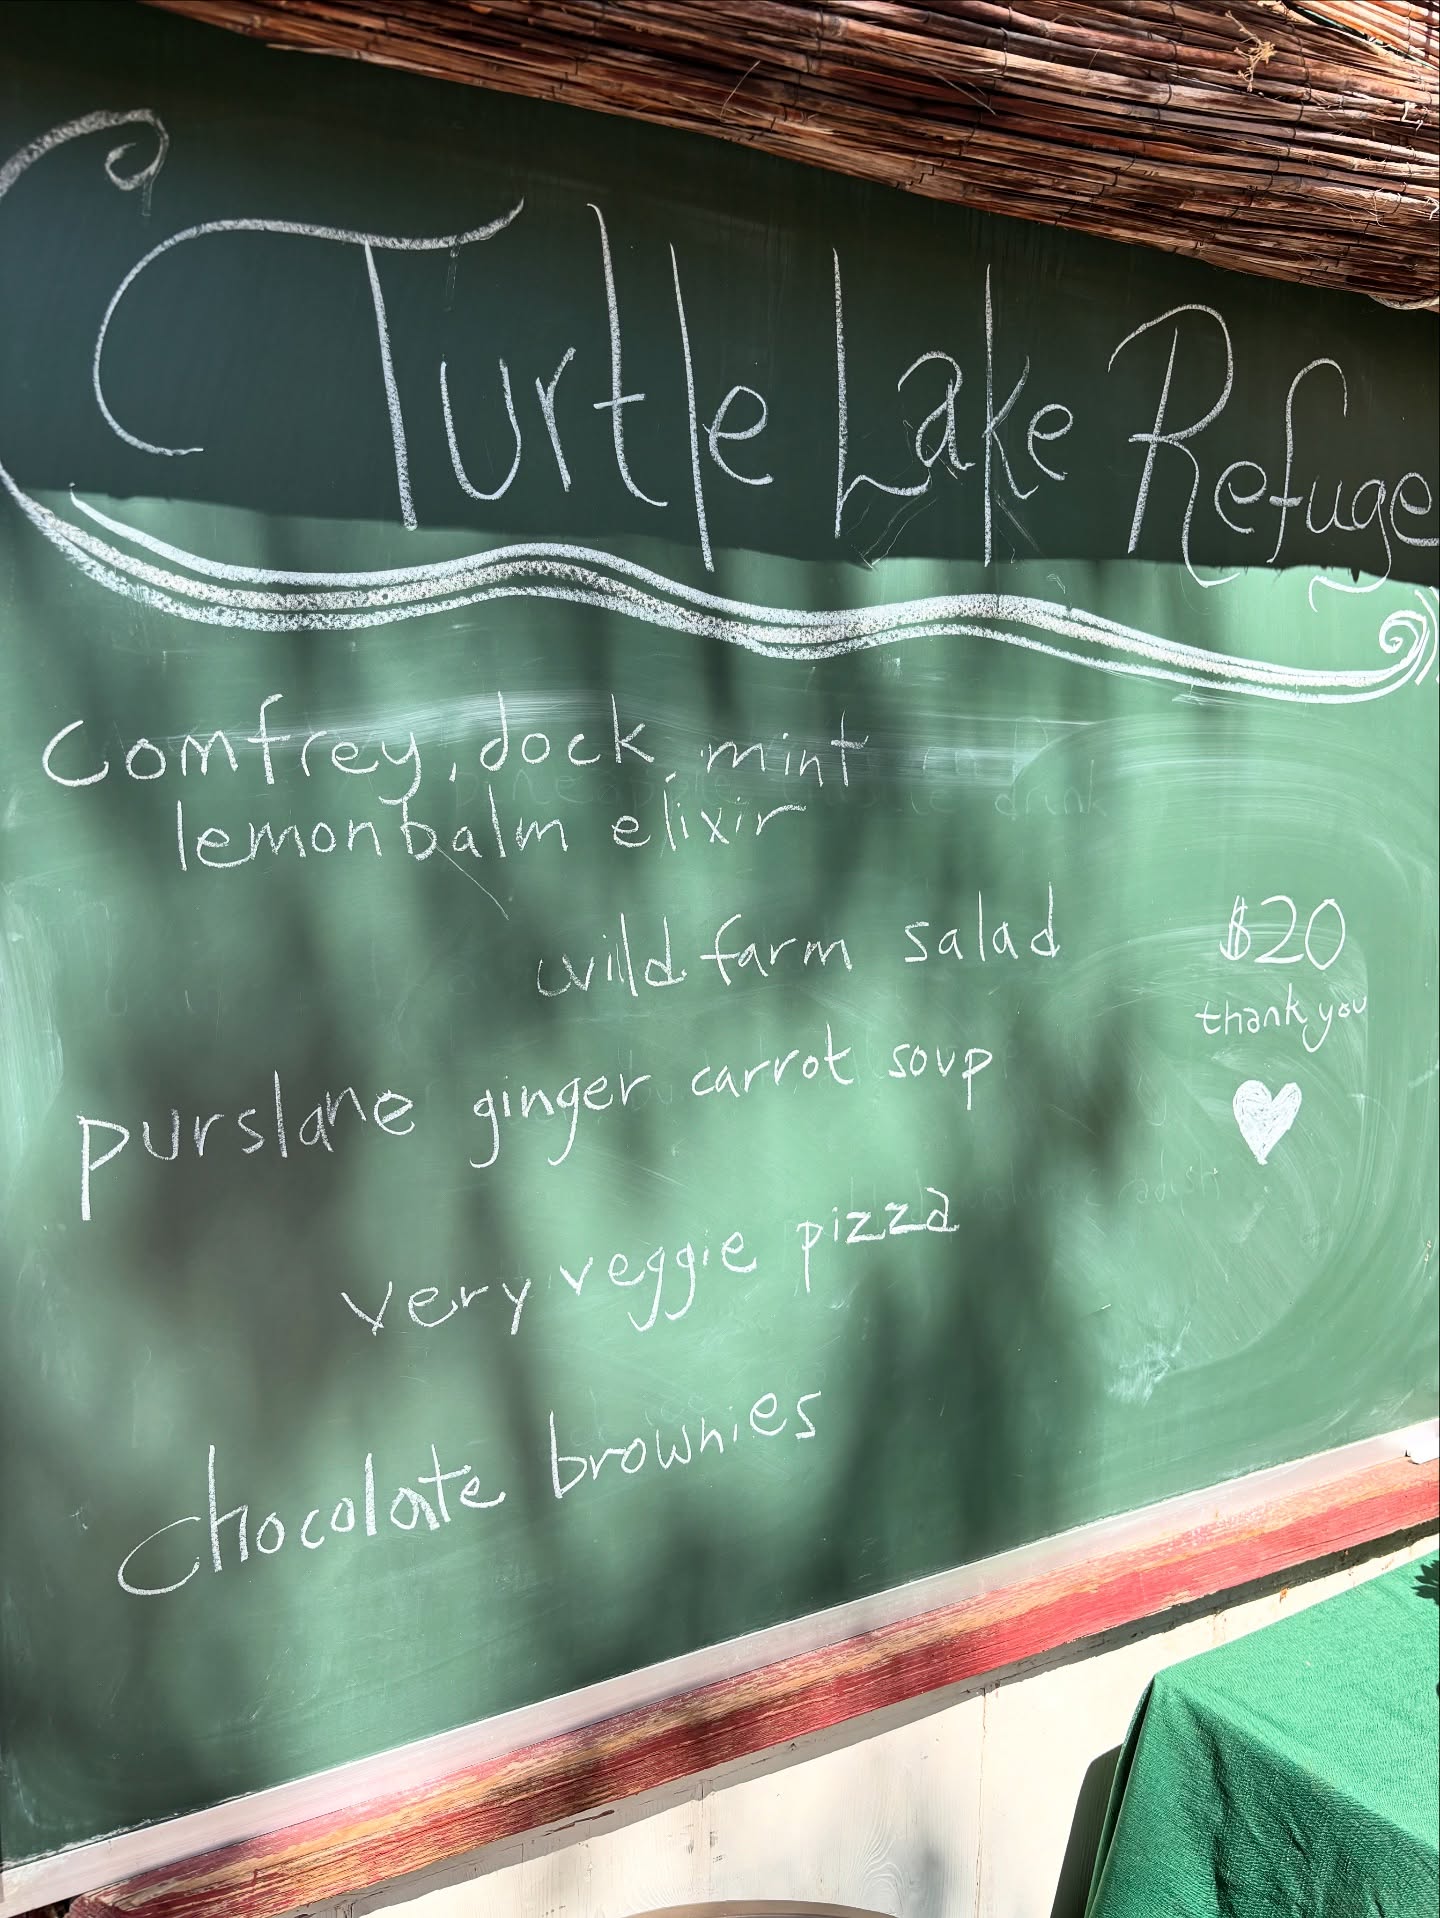 Turtle Lake Refuge
Comfrey, dock, mint
lemonbalm elixir
wild farm salad
$20
thank you
purslane ginger carrot soup
very veggie pizza
chocolate brownies